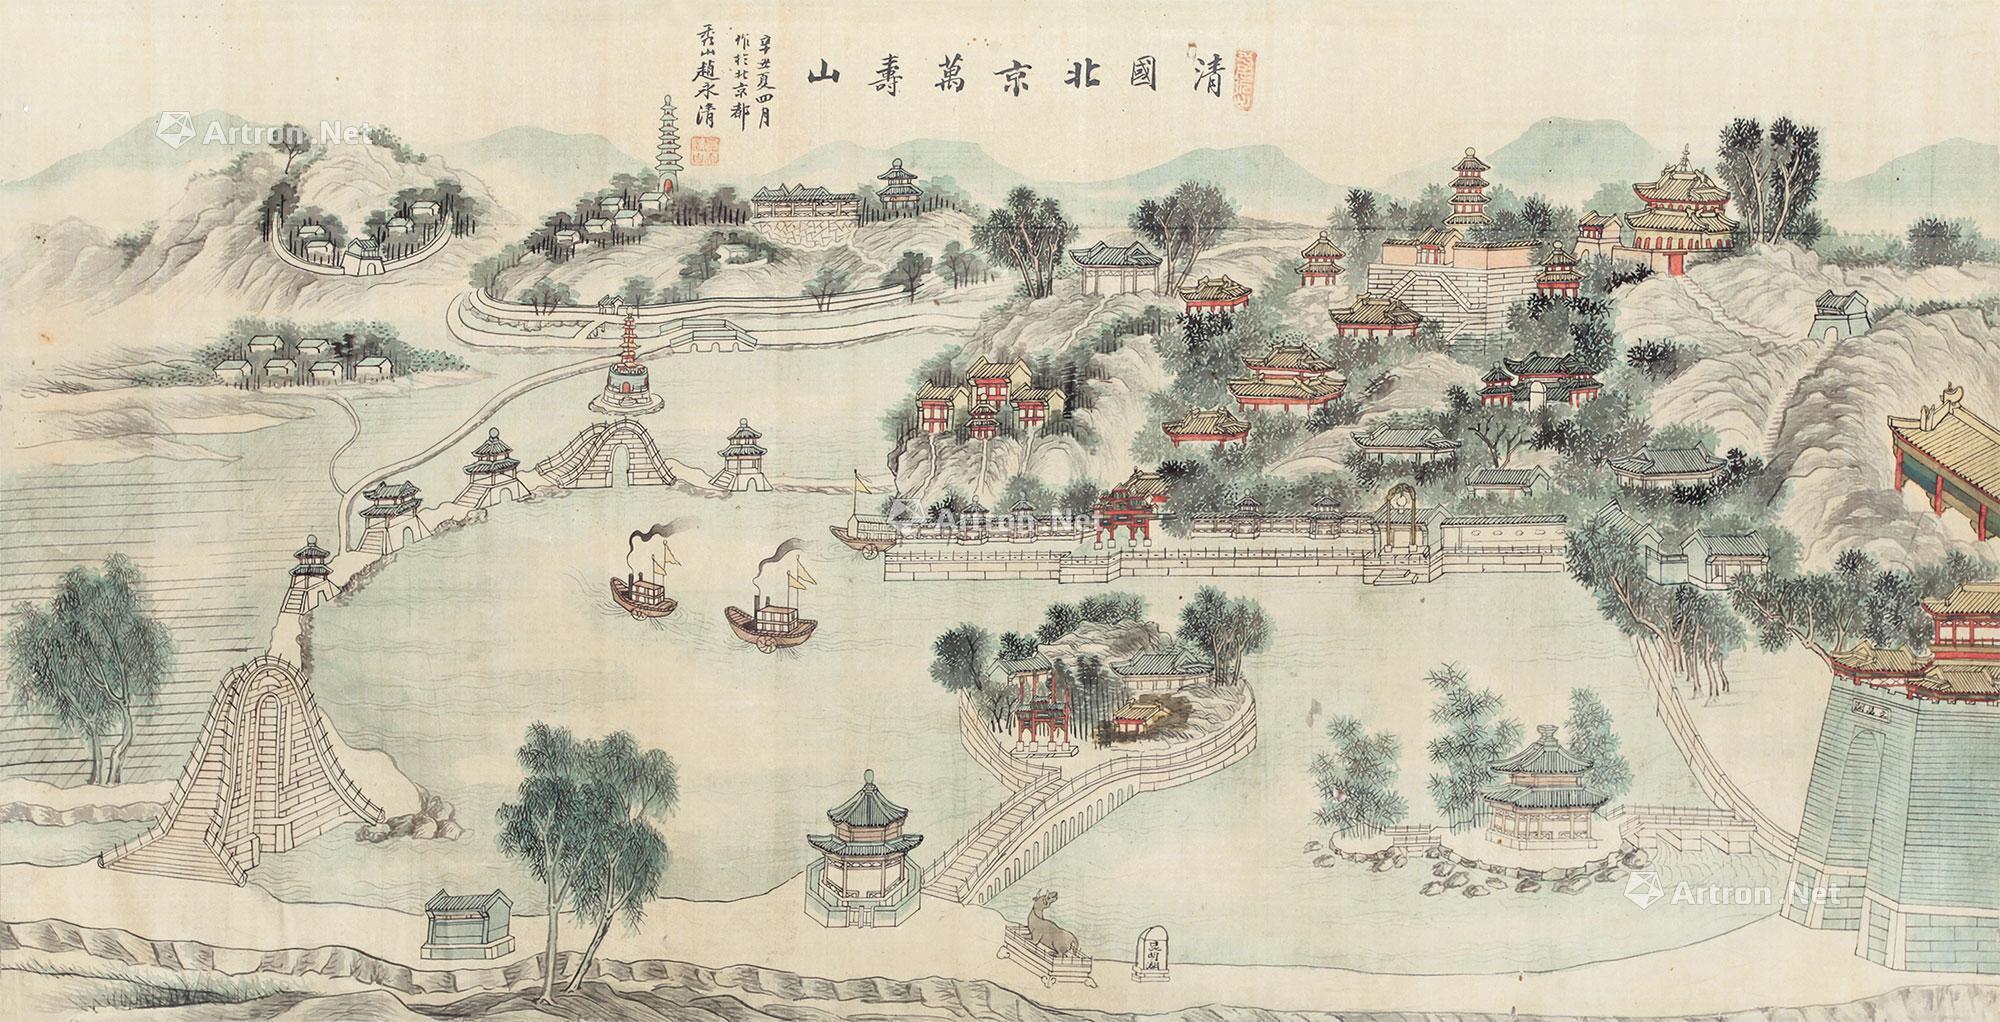 清國北京萬壽山
辛丑夏四月
作於北京都
秀山趙永清
昆明湖
文昌閣
Artron.Net
Artron.Net
Artron.Net
Artron.Net